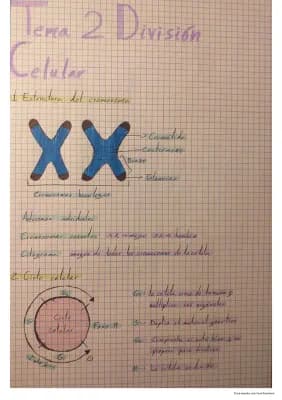 Tema 2 División
Celular
1. Estructura del cromosoma
Cromátida
Centrómero
Brazo
Telómero
Cromosomas homólogos
Cromosomas sexuales XX = mujer XY = hombre
Cariograma: imagen de todos los cromosomas de la célula
2. Ciclo celular
G₂
S
G₁
Ciclo
celular
Fase M
G₁: la célula crece de tamaño y
multiplica sus orgánulos
S: Duplica el material genético
G₂: Comprueba si está bien y se
prepara para dividirse
M: La célula se divide